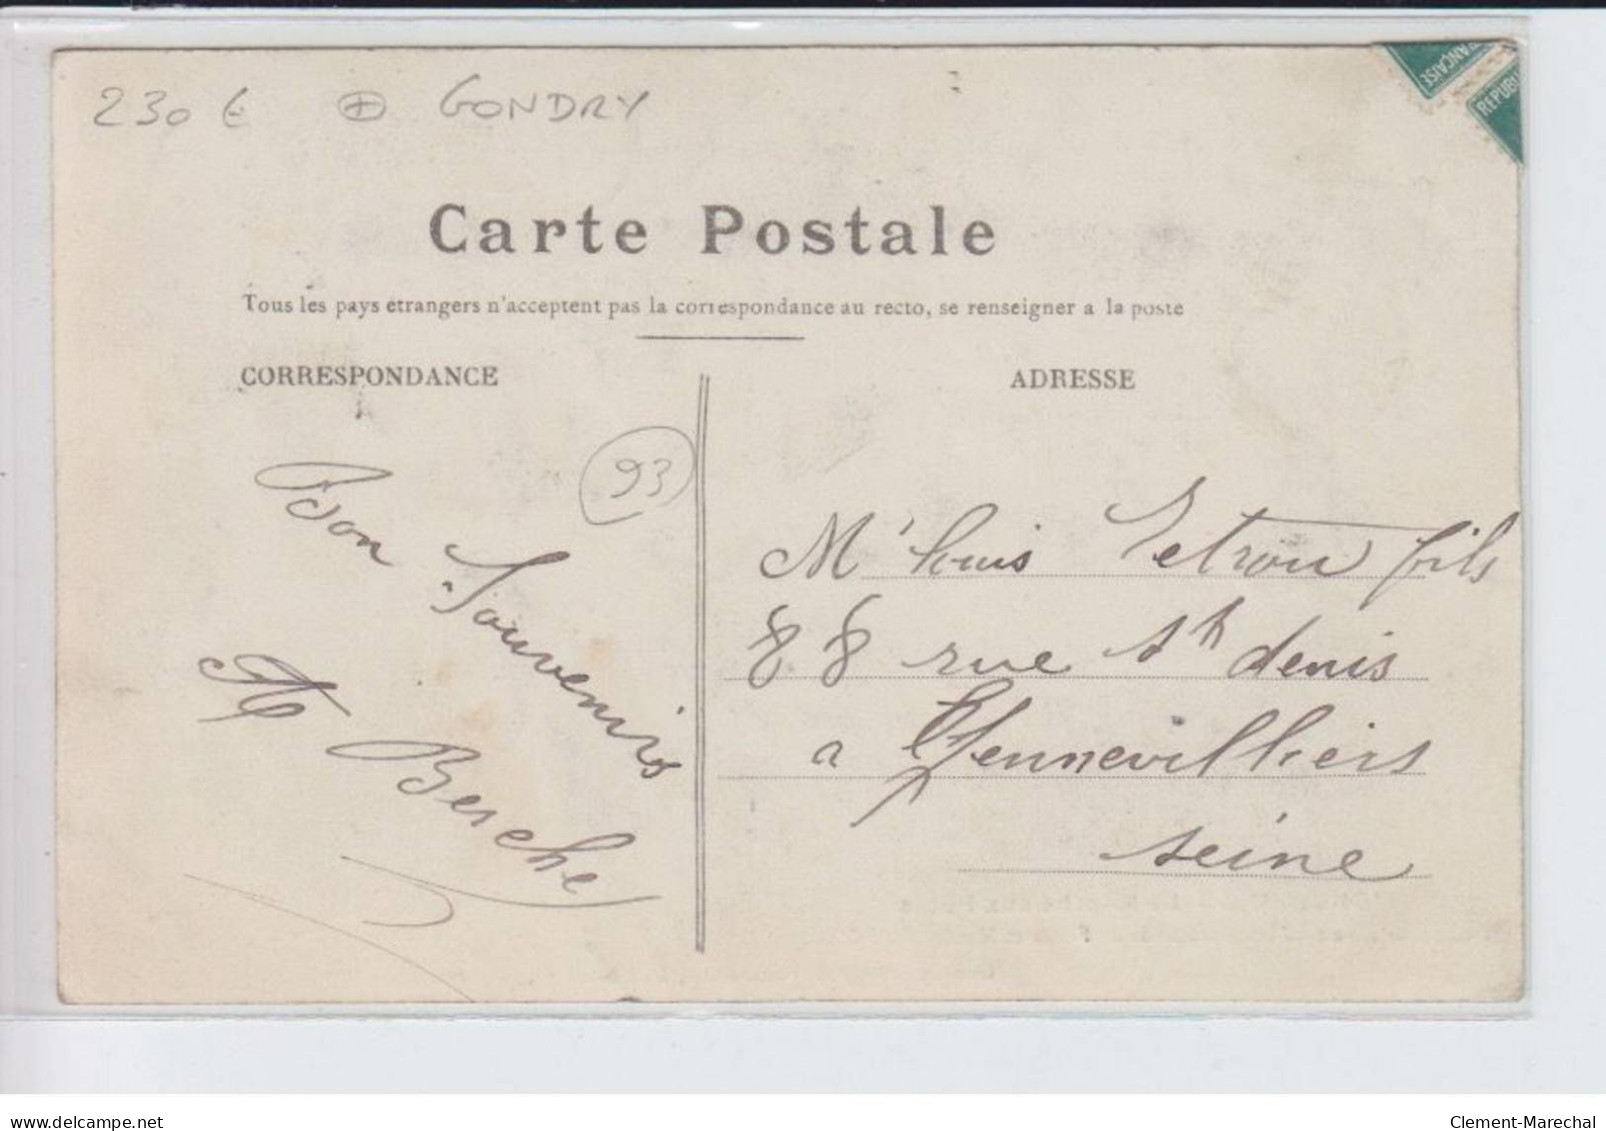 230 € ⊕ GONDRY
FRANÇAISE
REPUBL
Carte Postale
Tous les pays etrangers n'acceptent pas la correspondance au recto, se renseigner a la poste
CORRESPONDANCE
ADRESSE
93
Bon
Souvenirs
Berche
Mr Louis Letrou fils
88 rue St denis
a Gennevilliers
seine
delcampe.net
Clement-Marechal